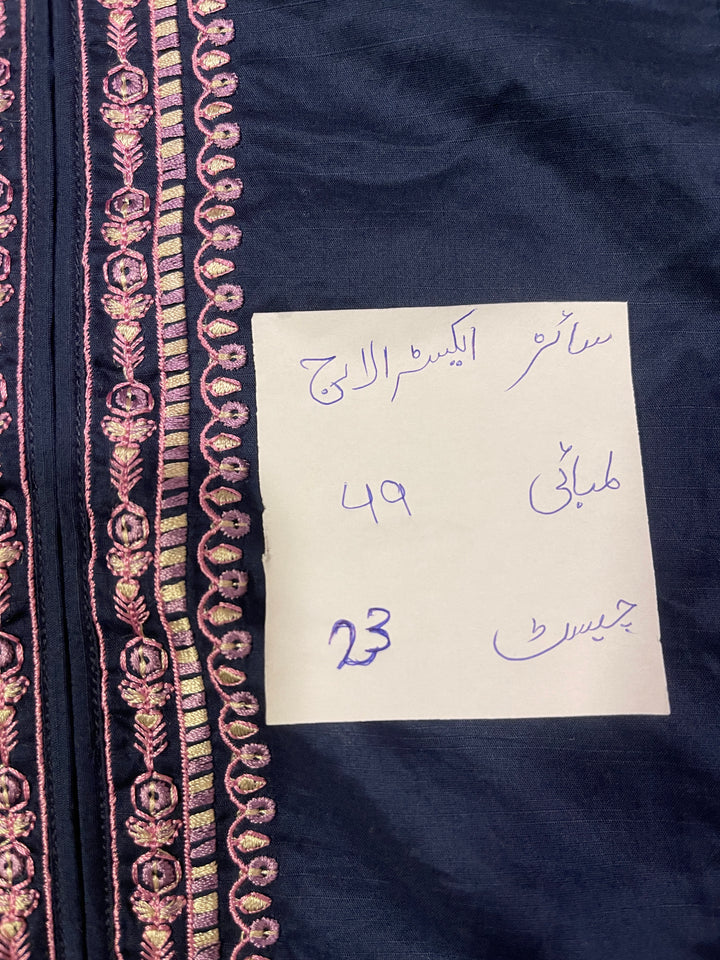 سائز ایکسٹرا لارج
لمبائی 49
چیسٹ 23